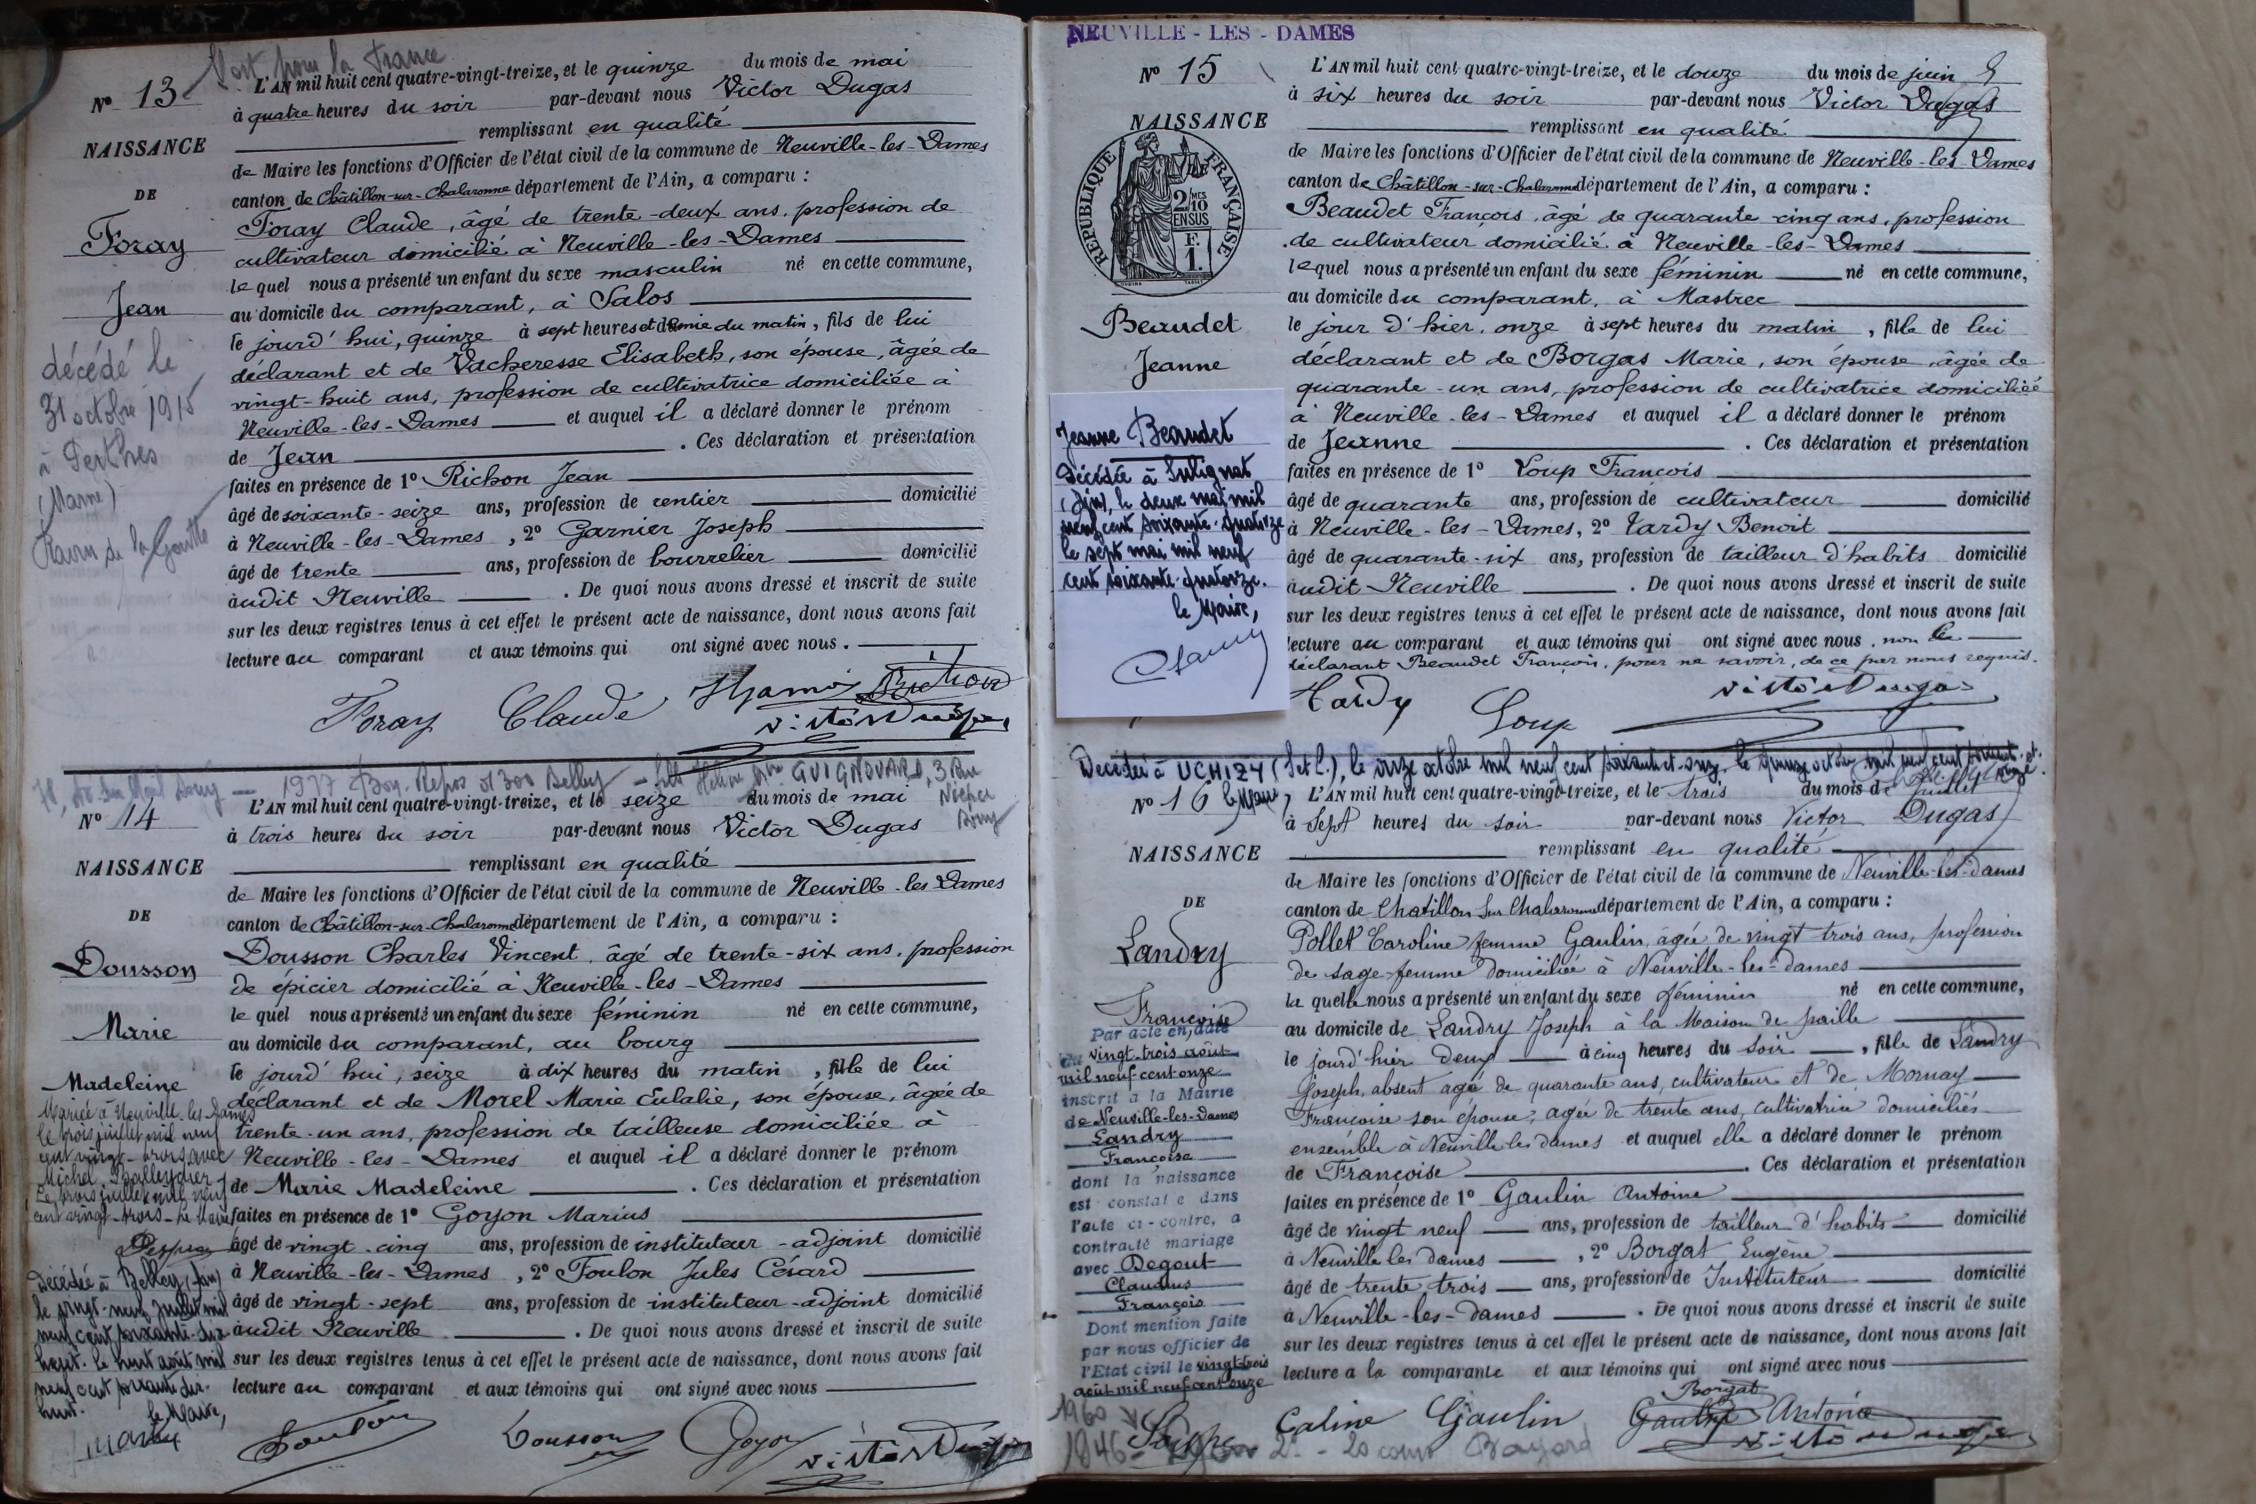 Mort pour la France
N° 13
NAISSANCE
DE
Foray
Jean
décédé le
31 octobre 1915
à Perthes
(Marne)
Ravin de la Goutte
L'AN mil huit cent quatre-vingt-treize, et le quinze du mois de mai
à quatre heures du soir par-devant nous Victor Dugas
remplissant en qualité
de Maire les fonctions d'Officier de l'état civil de la commune de Neuville-les-Dames
canton de Châtillon-sur-Chalaronne département de l'Ain, a comparu :
Foray Claude, âgé de trente-deux ans, profession de
cultivateur domicilié à Neuville-les-Dames
lequel nous a présenté un enfant du sexe masculin né en cette commune,
au domicile du comparant, à Salos
le jourd'hui, quinze à sept heures et demie du matin, fils de lui
déclarant et de Vacheresse Elisabeth, son épouse, âgée de
vingt-huit ans, profession de cultivatrice domiciliée à
Neuville-les-Dames et auquel il a déclaré donner le prénom
de Jean . Ces déclaration et présentation
faites en présence de 1° Richon Jean
âgé de soixante-seize ans, profession de rentier domicilié
à Neuville-les-Dames, 2° Garnier Joseph
âgé de trente ans, profession de bourrelier domicilié
audit Neuville . De quoi nous avons dressé et inscrit de suite
sur les deux registres tenus à cet effet le présent acte de naissance, dont nous avons fait
lecture au comparant et aux témoins qui ont signé avec nous.
Foray Claude Richon
Victor Dugas
1977 Bon Repos 01300 Belley - GUIGNOUARD, 3 Rue
N° 14
NAISSANCE
DE
Dousson
Marie
Madeleine
Mariée à Neuville-les-Dames
le trois juillet mil neuf
cent vingt-trois avec
Michel
Le trois juillet mil neuf
cent vingt-trois - Le Maire
Décédée à Belley (Ain)
le vingt-neuf juillet mil
neuf cent soixante-dix
huit. le huit août mil
neuf cent soixante dix-
huit. le Maire,
L'AN mil huit cent quatre-vingt-treize, et le seize du mois de mai
à trois heures du soir par-devant nous Victor Dugas
remplissant en qualité
de Maire les fonctions d'Officier de l'état civil de la commune de Neuville-les-Dames
canton de Châtillon-sur-Chalaronne département de l'Ain, a comparu :
Dousson Charles Vincent, âgé de trente-six ans, profession
de épicier domicilié à Neuville-les-Dames
lequel nous a présenté un enfant du sexe féminin né en cette commune,
au domicile du comparant, au bourg
le jourd'hui, seize à dix heures du matin, fille de lui
déclarant et de Morel Marie Eulalie, son épouse, âgée de
trente-un ans, profession de tailleuse domiciliée à
Neuville-les-Dames et auquel il a déclaré donner le prénom
de Marie Madeleine . Ces déclaration et présentation
faites en présence de 1° Goyon Marius
âgé de vingt-cinq ans, profession de instituteur-adjoint domicilié
à Neuville-les-Dames, 2° Foulon Jules Césard
âgé de vingt-sept ans, profession de instituteur-adjoint domicilié
audit Neuville . De quoi nous avons dressé et inscrit de suite
sur les deux registres tenus à cet effet le présent acte de naissance, dont nous avons fait
lecture au comparant et aux témoins qui ont signé avec nous
Foulon Dousson Goyon Victor Dugas
NEUVILLE - LES - DAMES
N° 15
NAISSANCE
RÉPUBLIQUE FRANÇAISE
2/10MES
EN SUS
F.
1.
Beaudet
Jeanne
Jeanne Beaudet
Décédée à Sulignat
(Ain), le deux mai mil
neuf cent soixante-quatorze
le sept mai mil neuf
cent soixante-quatorze.
le Maire,
L'AN mil huit cent quatre-vingt-treize, et le douze du mois de juin
à six heures du soir par-devant nous Victor Dugas
remplissant en qualité
de Maire les fonctions d'Officier de l'état civil de la commune de Neuville-les-Dames
canton de Châtillon-sur-Chalaronne département de l'Ain, a comparu :
Beaudet François, âgé de quarante cinq ans, profession
de cultivateur domicilié à Neuville-les-Dames
lequel nous a présenté un enfant du sexe féminin né en cette commune,
au domicile du comparant, à Mastrec
le jour d'hier, onze à sept heures du matin, fille de lui
déclarant et de Borgas Marie, son épouse, âgée de
quarante-un ans, profession de cultivatrice domiciliée
à Neuville-les-Dames et auquel il a déclaré donner le prénom
de Jeanne . Ces déclaration et présentation
faites en présence de 1° Loup François
âgé de quarante ans, profession de cultivateur domicilié
à Neuville-les-Dames, 2° Tardy Benoit
âgé de quarante-six ans, profession de tailleur d'habits domicilié
audit Neuville . De quoi nous avons dressé et inscrit de suite
sur les deux registres tenus à cet effet le présent acte de naissance, dont nous avons fait
lecture au comparant et aux témoins qui ont signé avec nous, non le
déclarant Beaudet François, pour ne savoir, de ce par nous requis.
Tardy Loup Victor Dugas
Décédée à UCHIZY (S et L.), le onze octobre mil neuf cent soixante et onze. le quinze octobre mil neuf cent soixante et onze.
le Maire,
N° 16
NAISSANCE
DE
Landry
Françoise
Par acte en date
du vingt-trois août
mil neuf cent onze
inscrit à la Mairie
de Neuville-les-Dames
Landry
Françoise
dont la naissance
est constatée dans
l'acte ci-contre, a
contracté mariage
avec Degout
Claudius
François
Dont mention faite
par nous officier de
l'Etat civil le vingt-trois
août mil neuf cent onze
L'AN mil huit cent quatre-vingt-treize, et le trois du mois de Juillet
à Sept heures du soir par-devant nous Victor Dugas
remplissant en qualité
de Maire les fonctions d'Officier de l'état civil de la commune de Neuville-les-dames
canton de Chatillon sur Chalaronne département de l'Ain, a comparu :
Pollet Caroline femme Gaulin, âgée de vingt trois ans, profession
de sage-femme domiciliée à Neuville-les-dames
laquelle nous a présenté un enfant du sexe féminin né en cette commune,
au domicile de Landry Joseph à la Maison de paille
le jourd'hier deux à cinq heures du soir, fille de Landry
Joseph, absent âgé de quarante ans, cultivateur et de Mornay
Françoise son épouse, âgée de trente ans, cultivatrice domiciliés
ensemble à Neuville les dames et auquel elle a déclaré donner le prénom
de Françoise . Ces déclaration et présentation
faites en présence de 1° Gaulin Antoine
âgé de vingt neuf ans, profession de tailleur d'habits domicilié
à Neuville les dames, 2° Borgat Eugène
âgé de trente trois ans, profession de Instituteur domicilié
a Neuville-les-dames . De quoi nous avons dressé et inscrit de suite
sur les deux registres tenus à cet effet le présent acte de naissance, dont nous avons fait
lecture a la comparante et aux témoins qui ont signé avec nous
Borgat
Caline Gaulin Gaulin Antoine
Victor Dugas
1960
1946 - 2e - 20 cours Bayard